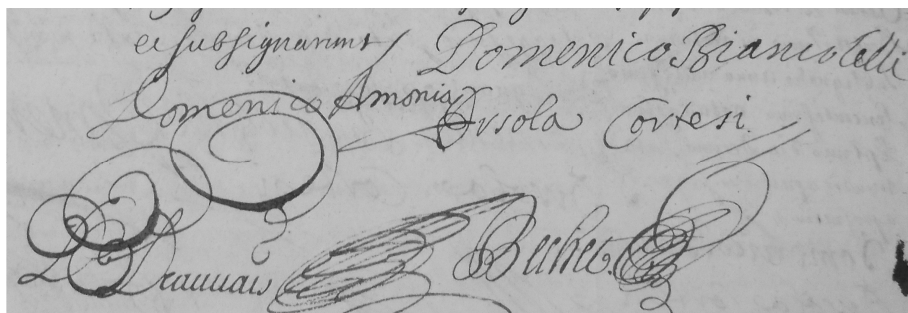 et subsignarunt Domenico Biancolelli
Domenico Amonio Orsola Cortesi
De Beauvais Bechet